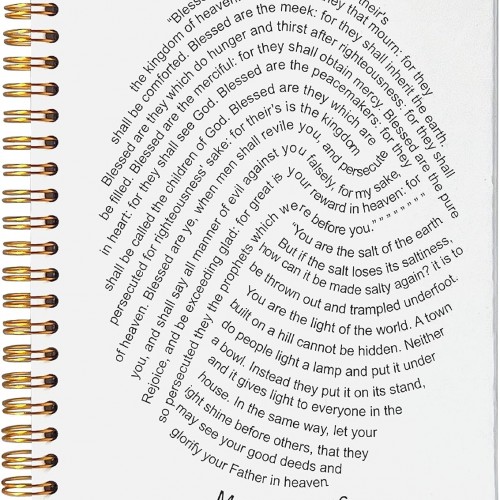 "Blessed
their's
the kingdom of heaven.
they that mourn: for they
shall be comforted. Blessed are the meek: for they shall inherit the earth.
Blessed are they which do hunger and thirst after righteousness: for they shall
be filled. Blessed are the merciful: for they shall obtain mercy. Blessed are the pure
in heart: for they shall see God. Blessed are the peacemakers: for they
shall be called the children of God. Blessed are they which are
persecuted for righteousness' sake: for their's is the kingdom
of heaven. Blessed are ye, when men shall revile you, and persecute
you, and shall say all manner of evil against you falsely, for my sake,
Rejoice, and be exceeding glad: for great is your reward in heaven: for
so persecuted they the prophets which were before you." " " " " " " " "
"You are the salt of the earth
But if the salt loses its saltiness,
how can it be made salty again? it is to
be thrown out and trampled underfoot.
You are the light of the world. A town
built on a hill cannot be hidden. Neither
do people light a lamp and put it under
a bowl. Instead they put it on its stand,
and it gives light to everyone in the
house. In the same way, let your
ight shine before others, that they
may see your good deeds and
glorify your Father in heaven.